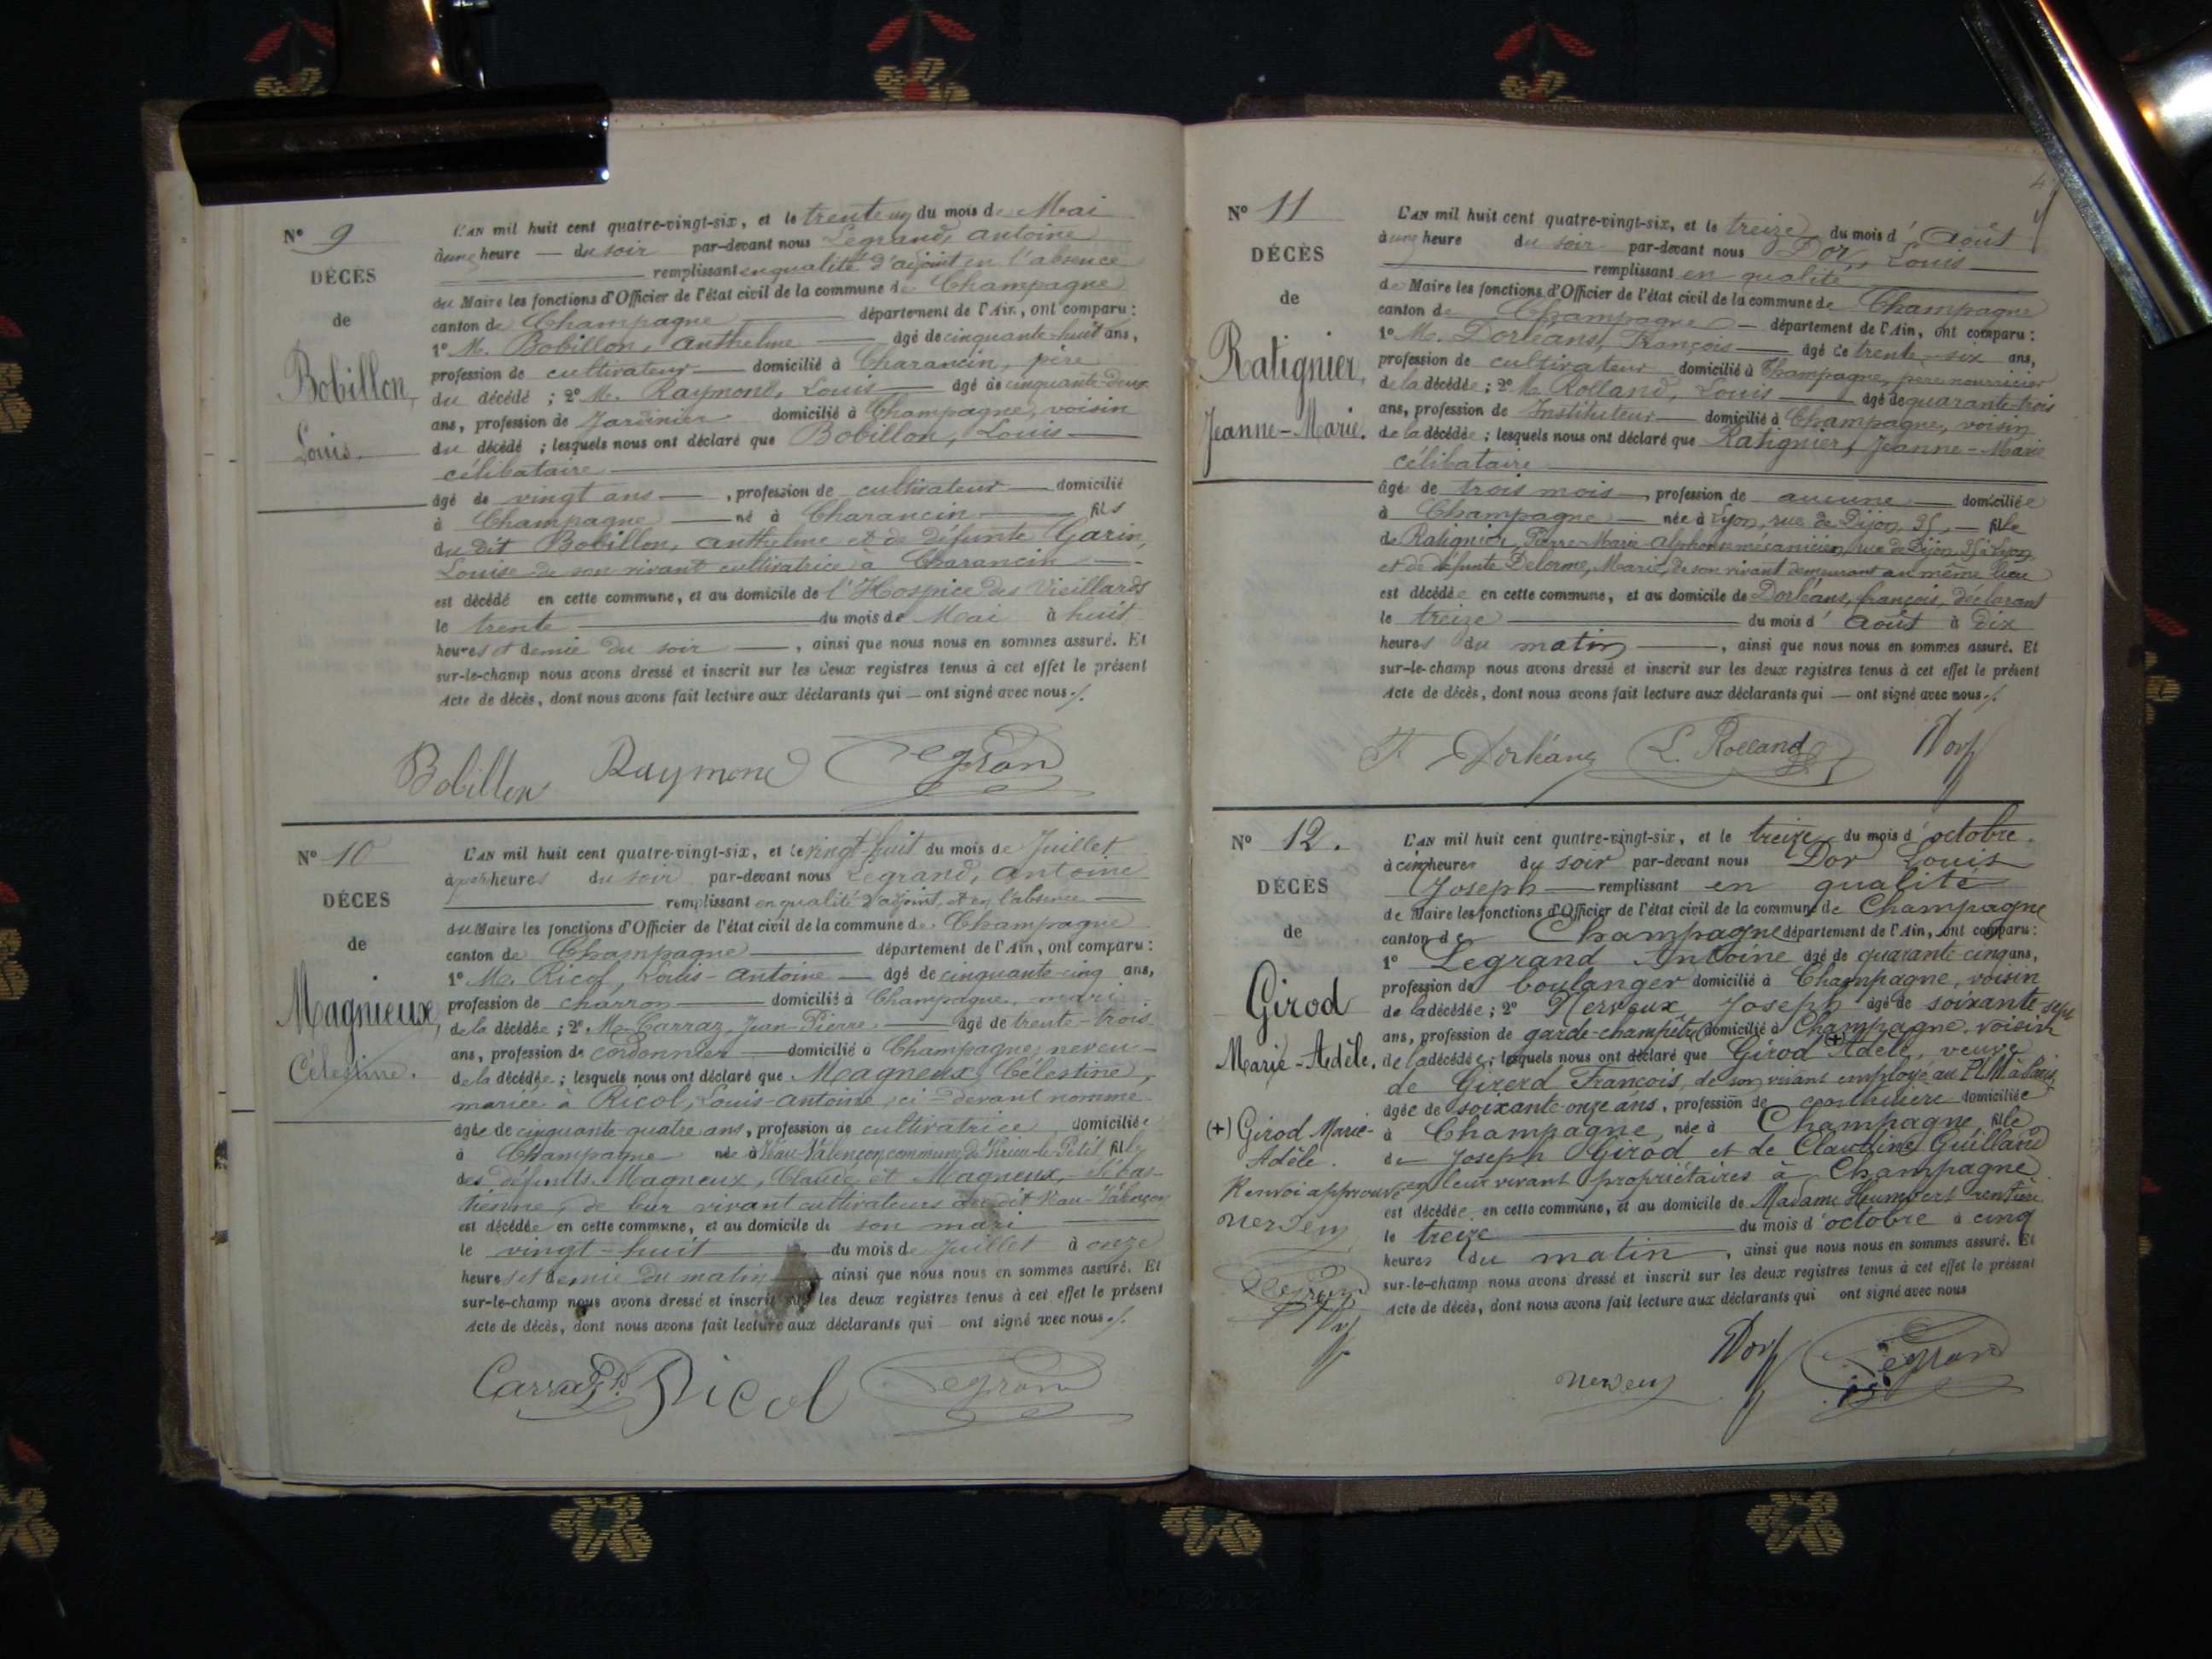 N° 9
DÉCÈS
de
Bobillon,
Louis.
L'AN mil huit cent quatre-vingt-six, et le trente un du mois de Mai
à une heure — du soir par-devant nous Legrand, Antoine
remplissant en qualité d'adjoint en l'absence
du Maire les fonctions d'Officier de l'état civil de la commune de Champagne
canton de Champagne — département de l'Ain, ont comparu :
1° M. Bobillon, Anthelme — âgé de cinquante-huit ans,
profession de cultivateur — domicilié à Charancin, père
du décédé ; 2° M. Raymond, Louis — âgé de cinquante-deux
ans, profession de Jardinier domicilié à Champagne, voisin
du décédé ; lesquels nous ont déclaré que Bobillon, Louis —
célibataire
âgé de vingt ans —, profession de cultivateur — domicilié
à Champagne — né à Charancin — fils
du dit Bobillon, Anthelme et de défunte Garin,
Louise de son vivant cultivatrice à Charancin —
est décédé en cette commune, et au domicile de l'Hospice des Vieillards
le trente — du mois de Mai à huit
heures et demie du soir —, ainsi que nous nous en sommes assuré. Et
sur-le-champ nous avons dressé et inscrit sur les deux registres tenus à cet effet le présent
Acte de décès, dont nous avons fait lecture aux déclarants qui — ont signé avec nous ./.
Bobillon Raymond Legrand
N° 10
DÉCÈS
de
Magnieux,
Célestine.
L'AN mil huit cent quatre-vingt-six, et le vingt-huit du mois de Juillet
à heures du soir par-devant nous Legrand, Antoine
remplissant en qualité d'adjoint, et en l'absence —
du Maire les fonctions d'Officier de l'état civil de la commune de Champagne
canton de Champagne — département de l'Ain, ont comparu :
1° M. Ricol, Louis-Antoine — âgé de cinquante-cinq ans,
profession de charron — domicilié à Champagne, mari
de la décédée ; 2° M. Carraz, Jean-Pierre — âgé de trente-trois
ans, profession de cordonnier — domicilié à Champagne, neveu —
de la décédée ; lesquels nous ont déclaré que Magneux, Célestine,
mariée à Ricol, Louis-Antoine, ci-devant nommé
âgée de cinquante-quatre ans, profession de cultivatrice, domiciliée
à Champagne née à commune de Virieu-le-Petit fille
des défunts Magneux, Claude et Magneux, Sébas-
tienne, de leur vivant cultivateurs au dit
est décédée en cette commune, et au domicile de son mari —
le vingt-huit — du mois de Juillet à onze
heures et demie du matin — ainsi que nous nous en sommes assuré. Et
sur-le-champ nous avons dressé et inscrit sur les deux registres tenus à cet effet le présent
Acte de décès, dont nous avons fait lecture aux déclarants qui — ont signé avec nous ./.
Carraz Ricol Legrand
N° 11
DÉCÈS
de
Ratignier,
Jeanne-Marie.
L'AN mil huit cent quatre-vingt-six, et le treize du mois d'Août
à une heure du soir par-devant nous Dor, Louis —
remplissant en qualité
de Maire les fonctions d'Officier de l'état civil de la commune de Champagne
canton de Champagne — département de l'Ain, ont comparu :
1° M. Dorléans, François — âgé de trente-six ans,
profession de cultivateur domicilié à Champagne, père nourricier
de la décédée ; 2° M. Rolland, Louis — âgé de quarante-trois
ans, profession de Instituteur — domicilié à Champagne, voisin
de la décédée ; lesquels nous ont déclaré que Ratignier, Jeanne-Marie
célibataire
âgé de trois mois —, profession de aucune — domiciliée
à Champagne — née à Lyon, rue de Dijon, 35, — fille
de Ratignier, Pierre-Marie-Alphonse mécanicien, rue de Dijon 35 à Lyon
et de défunte Delorme, Marie, de son vivant demeurant au même lieu
est décédée en cette commune, et au domicile de Dorléans, françois, déclarant
le treize — du mois d'Août à dix
heures du matin —, ainsi que nous nous en sommes assuré. Et
sur-le-champ nous avons dressé et inscrit sur les deux registres tenus à cet effet le présent
Acte de décès, dont nous avons fait lecture aux déclarants qui — ont signé avec nous ./.
F Dorléans L. Rolland Dor
N° 12.
DÉCÈS
de
Girod
Marie-Adèle.
(+) Girod Marie-
Adèle.
Renvoi approuvé
Legrand
Dor
L'AN mil huit cent quatre-vingt-six, et le treize du mois d'octobre.
à cinq heures du soir par-devant nous Dor Louis
Joseph — remplissant en qualité
de Maire les fonctions d'Officier de l'état civil de la commune de Champagne
canton de Champagne département de l'Ain, ont comparu :
1° Legrand Antoine âgé de quarante cinq ans,
profession de boulanger domicilié à Champagne, voisin
de la décédée ; 2° Joseph âgé de soixante-sept
ans, profession de garde-champêtre domicilié à Champagne, voisin
de la décédée ; lesquels nous ont déclaré que Girod (+) Adèle, veuve
de Girerd François, de son vivant employé au PLM à Paris
âgée de soixante-onze ans, profession de couturière domiciliée
à Champagne, née à Champagne fille
de Joseph Girod et de Claudine Guilland
en leur vivant propriétaires à Champagne
est décédée en cette commune, et au domicile de Madame Humbert rentière
le treize — du mois d'octobre à cinq
heures du matin, ainsi que nous nous en sommes assuré. Et
sur-le-champ nous avons dressé et inscrit sur les deux registres tenus à cet effet le présent
Acte de décès, dont nous avons fait lecture aux déclarants qui ont signé avec nous
Dor Legrand